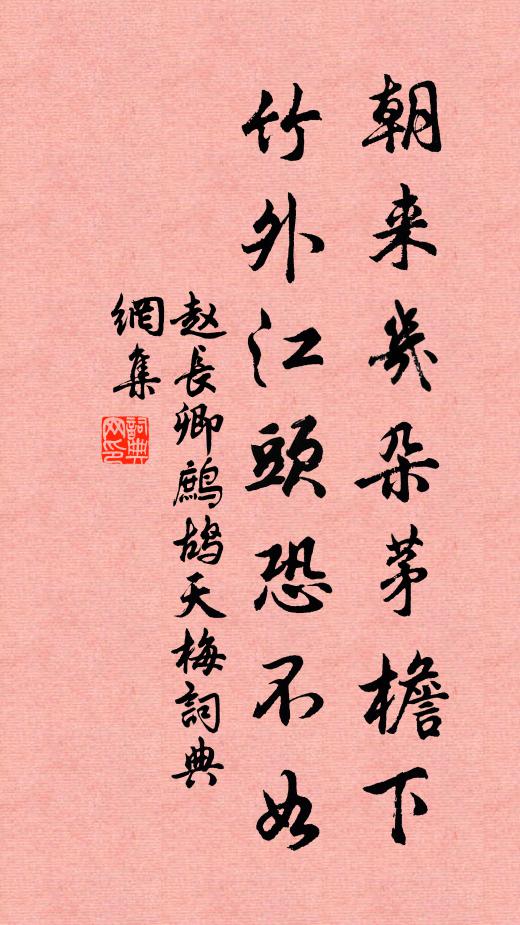 朝来幾朵茅檐下
竹外江頭恐不如
赵長卿鷓鴣天梅詞典
網集
詞典
网印